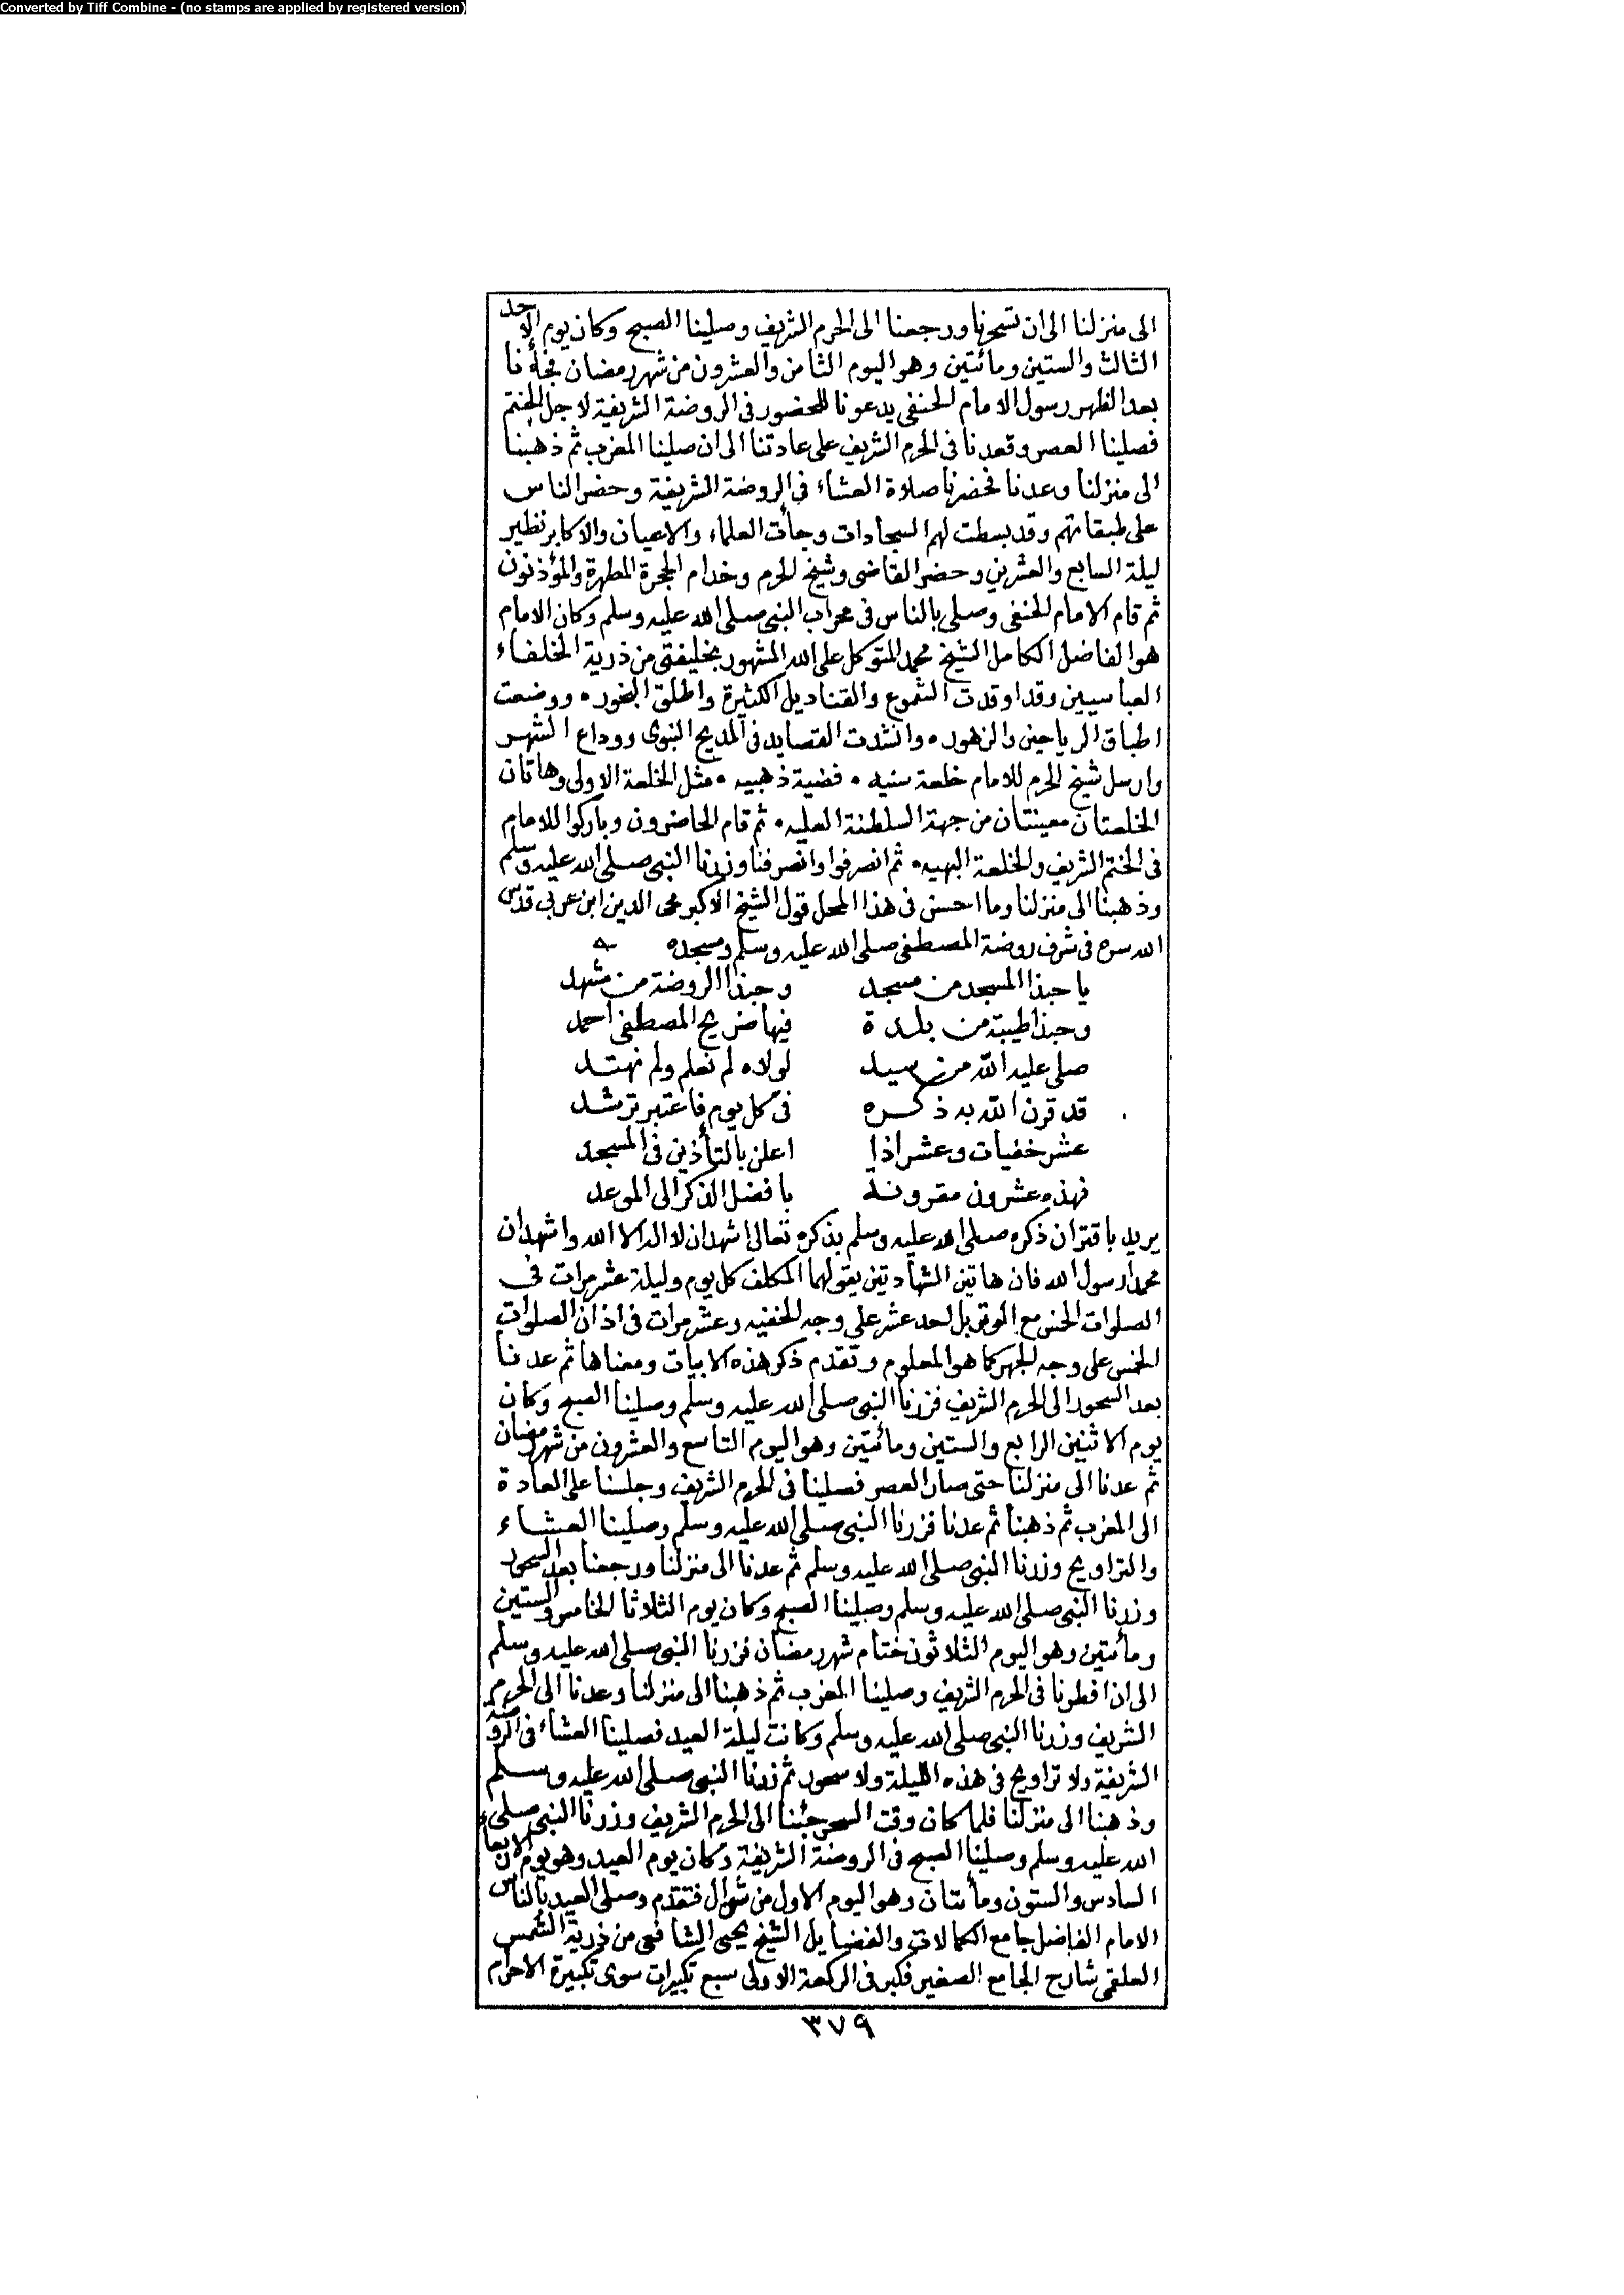 Converted by Tiff Combine - (no stamps are applied by registered version)
الى منزلنا الى ان تسحرنا ورجعنا الى الحرم الشريف وصلينا الصبح وكان يوم الاحد
الثالث والستين ومائتين وهو اليوم الثامن والعشرون من شهر رمضان فجاءنا
بعد الظهر رسول الامام الحنفي يدعونا للحضور في الروضة الشريفة لاجل الختم
فصلينا العصر وقعدنا في الحرم الشريف على عادتنا الى ان صلينا المغرب ثم ذهبنا
الى منزلنا وعدنا فحضرنا صلاة العشاء في الروضة الشريفة وحضر الناس
على طبقاتهم وقد بسطت لهم السجادات وجاءت العلماء والاعيان والاكابر نظير
ليلة السابع والعشرين وحضر القاضى وشيخ الحرم وخدام الحجرة المطهرة والمؤذنون
ثم قام الامام الحنفي وصلى بالناس في محراب النبى صلى الله عليه وسلم وكان الامام
هو الفاضل الكامل الشيخ محمد المتوكل على الله المشهور بخليفتى من ذرية الخلفاء
العباسيين وقد اوقدت الشموع والقناديل الكثيرة واطلق البخور • ووضعت
اطباق الرياحين والزهور • وانشدت القصايد في المديح النبوى ووداع الشهر
وارسل شيخ الحرم للامام خلعة سنيه • فضية ذهبيه • مثل الخلعة الاولى وهاتان
الخلعتان معينتان من جهة السلطنة العليه • ثم قام الحاضرون وباركوا للامام
في الختم الشريف والخلعة البهيه • ثم انصرفوا وانصرفنا وزرنا النبى صلى الله عليه وسلم
وذهبنا الى منزلنا وما احسن في هذا المحل قول الشيخ الاكبر محى الدين ابن عربي قدس
الله سره في شرف روضة المصطفى صلى الله عليه وسلم ومسجده
يا حبذا المسجد من مسجد وحبذا الروضة من مشهد
وحبذا طيبة من بلدة فيها ضريح المصطفى احمد
صلى عليه الله من سيد لولاه لم نعلم ولم نهتد
قد قرن الله به ذكره في كل يوم فاعتبر ترشد
عشر خفيات وعشر اذا اعلن بالتأذين في المسجد
فهذه عشرون مقرونة بافضل الذكر الى الموعد
يريد باقتران ذكره صلى الله عليه وسلم بذكره تعالى اشهد ان لا اله الا الله واشهد ان
محمدا رسول الله فان هاتين الشهادتين يقولهما المكلف كل يوم وليلة عشر مرات في
الصلوات الخمس مع الوتر بل احد عشر على وجه الخفيه وعشر مرات في اذان الصلوات
الخمس على وجه الجهر كما هو المعلوم وتقدم ذكر هذه الابيات ومعناها ثم عدنا
بعد السحور الى الحرم الشريف فزرنا النبى صلى الله عليه وسلم وصلينا الصبح وكان
يوم الاثنين الرابع والستين ومائتين وهو اليوم التاسع والعشرون من شهر رمضان
ثم عدنا الى منزلنا حتى صار العصر فصلينا في الحرم الشريف وجلسنا على العادة
الى المغرب ثم ذهبنا ثم عدنا فزرنا النبى صلى الله عليه وسلم وصلينا العشاء
والتراويح وزرنا النبى صلى الله عليه وسلم ثم عدنا الى منزلنا ورجعنا بعد السحور
وزرنا النبى صلى الله عليه وسلم وصلينا الصبح وكان يوم الثلاثا الخامس والستين
ومائتين وهو اليوم الثلاثون ختام شهر رمضان فزرنا النبى صلى الله عليه وسلم
الى ان افطرنا في الحرم الشريف وصلينا المغرب ثم ذهبنا الى منزلنا وعدنا الى الحرم
الشريف وزرنا النبى صلى الله عليه وسلم وكانت ليلة العيد فصلينا العشاء في الروضة
الشريفة ولا تراويح في هذه الليلة ولا سحور ثم زرنا النبى صلى الله عليه وسلم
وذهبنا الى منزلنا فلما كان وقت السحر جئنا الى الحرم الشريف وزرنا النبى صلى
الله عليه وسلم وصلينا الصبح في الروضة الشريفة وكان يوم العيد وهو يوم الاربعا
السادس والستون ومأتان وهو اليوم الاول من شوال فتقدم وصلى العيد بالناس
الامام الفاضل جامع الكمالات والفضايل الشيخ يحيى الشافعي من ذرية الشمس
العلقمى شارح الجامع الصغير فكبر في الركعة الاولى سبع تكبيرات سوى تكبيرة الاحرام
٣٧٩